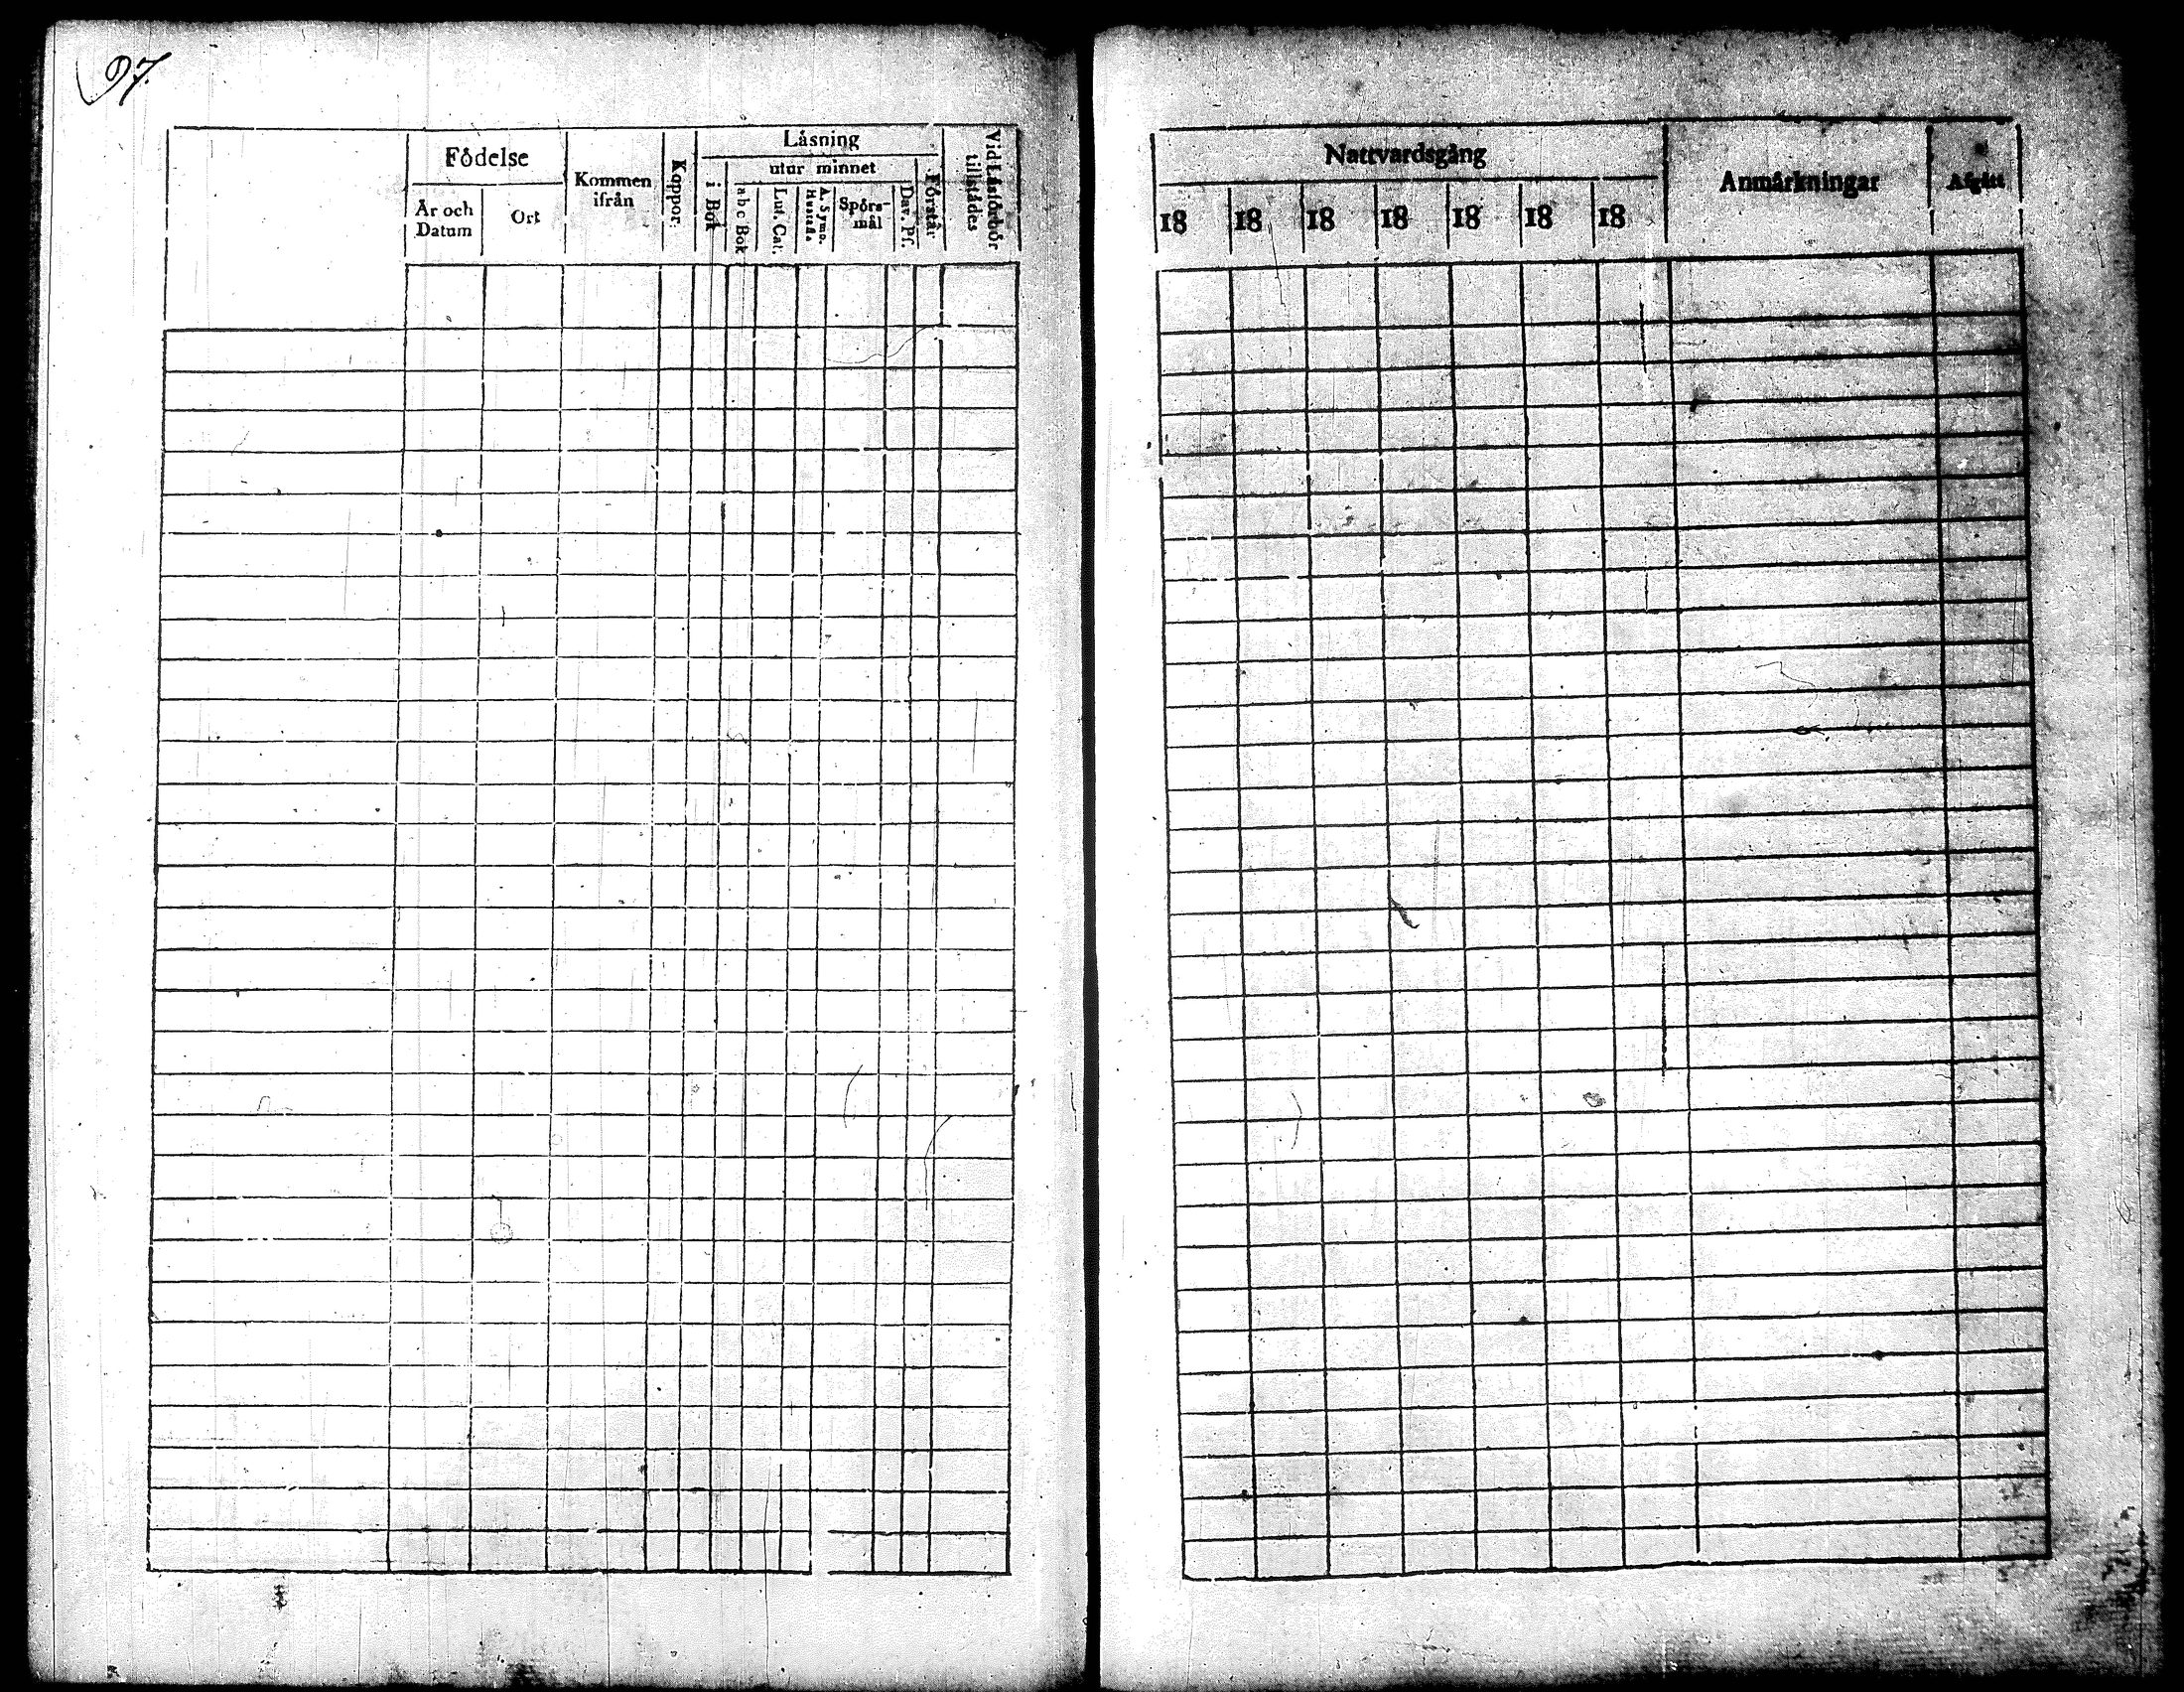 97.
Födelse
År och Datum
Ort
Kommen ifrån
Koppor
Låsning
utur minnet
i Bok
a b c Bok
Lut. Cat.
A. Symb.
Spörsmål
Dav. Ps.
Förstår
Vid Låsförhör tillstådes
Nattvardsgång
18 18 18 18 18 18 18
Anmårkningar
Afgått